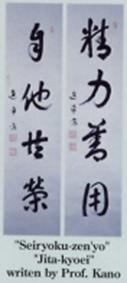 精力善用
自他共栄
"Seiryoku-zen'yo"
"Jita-kyoei"
writen by Prof. Kano